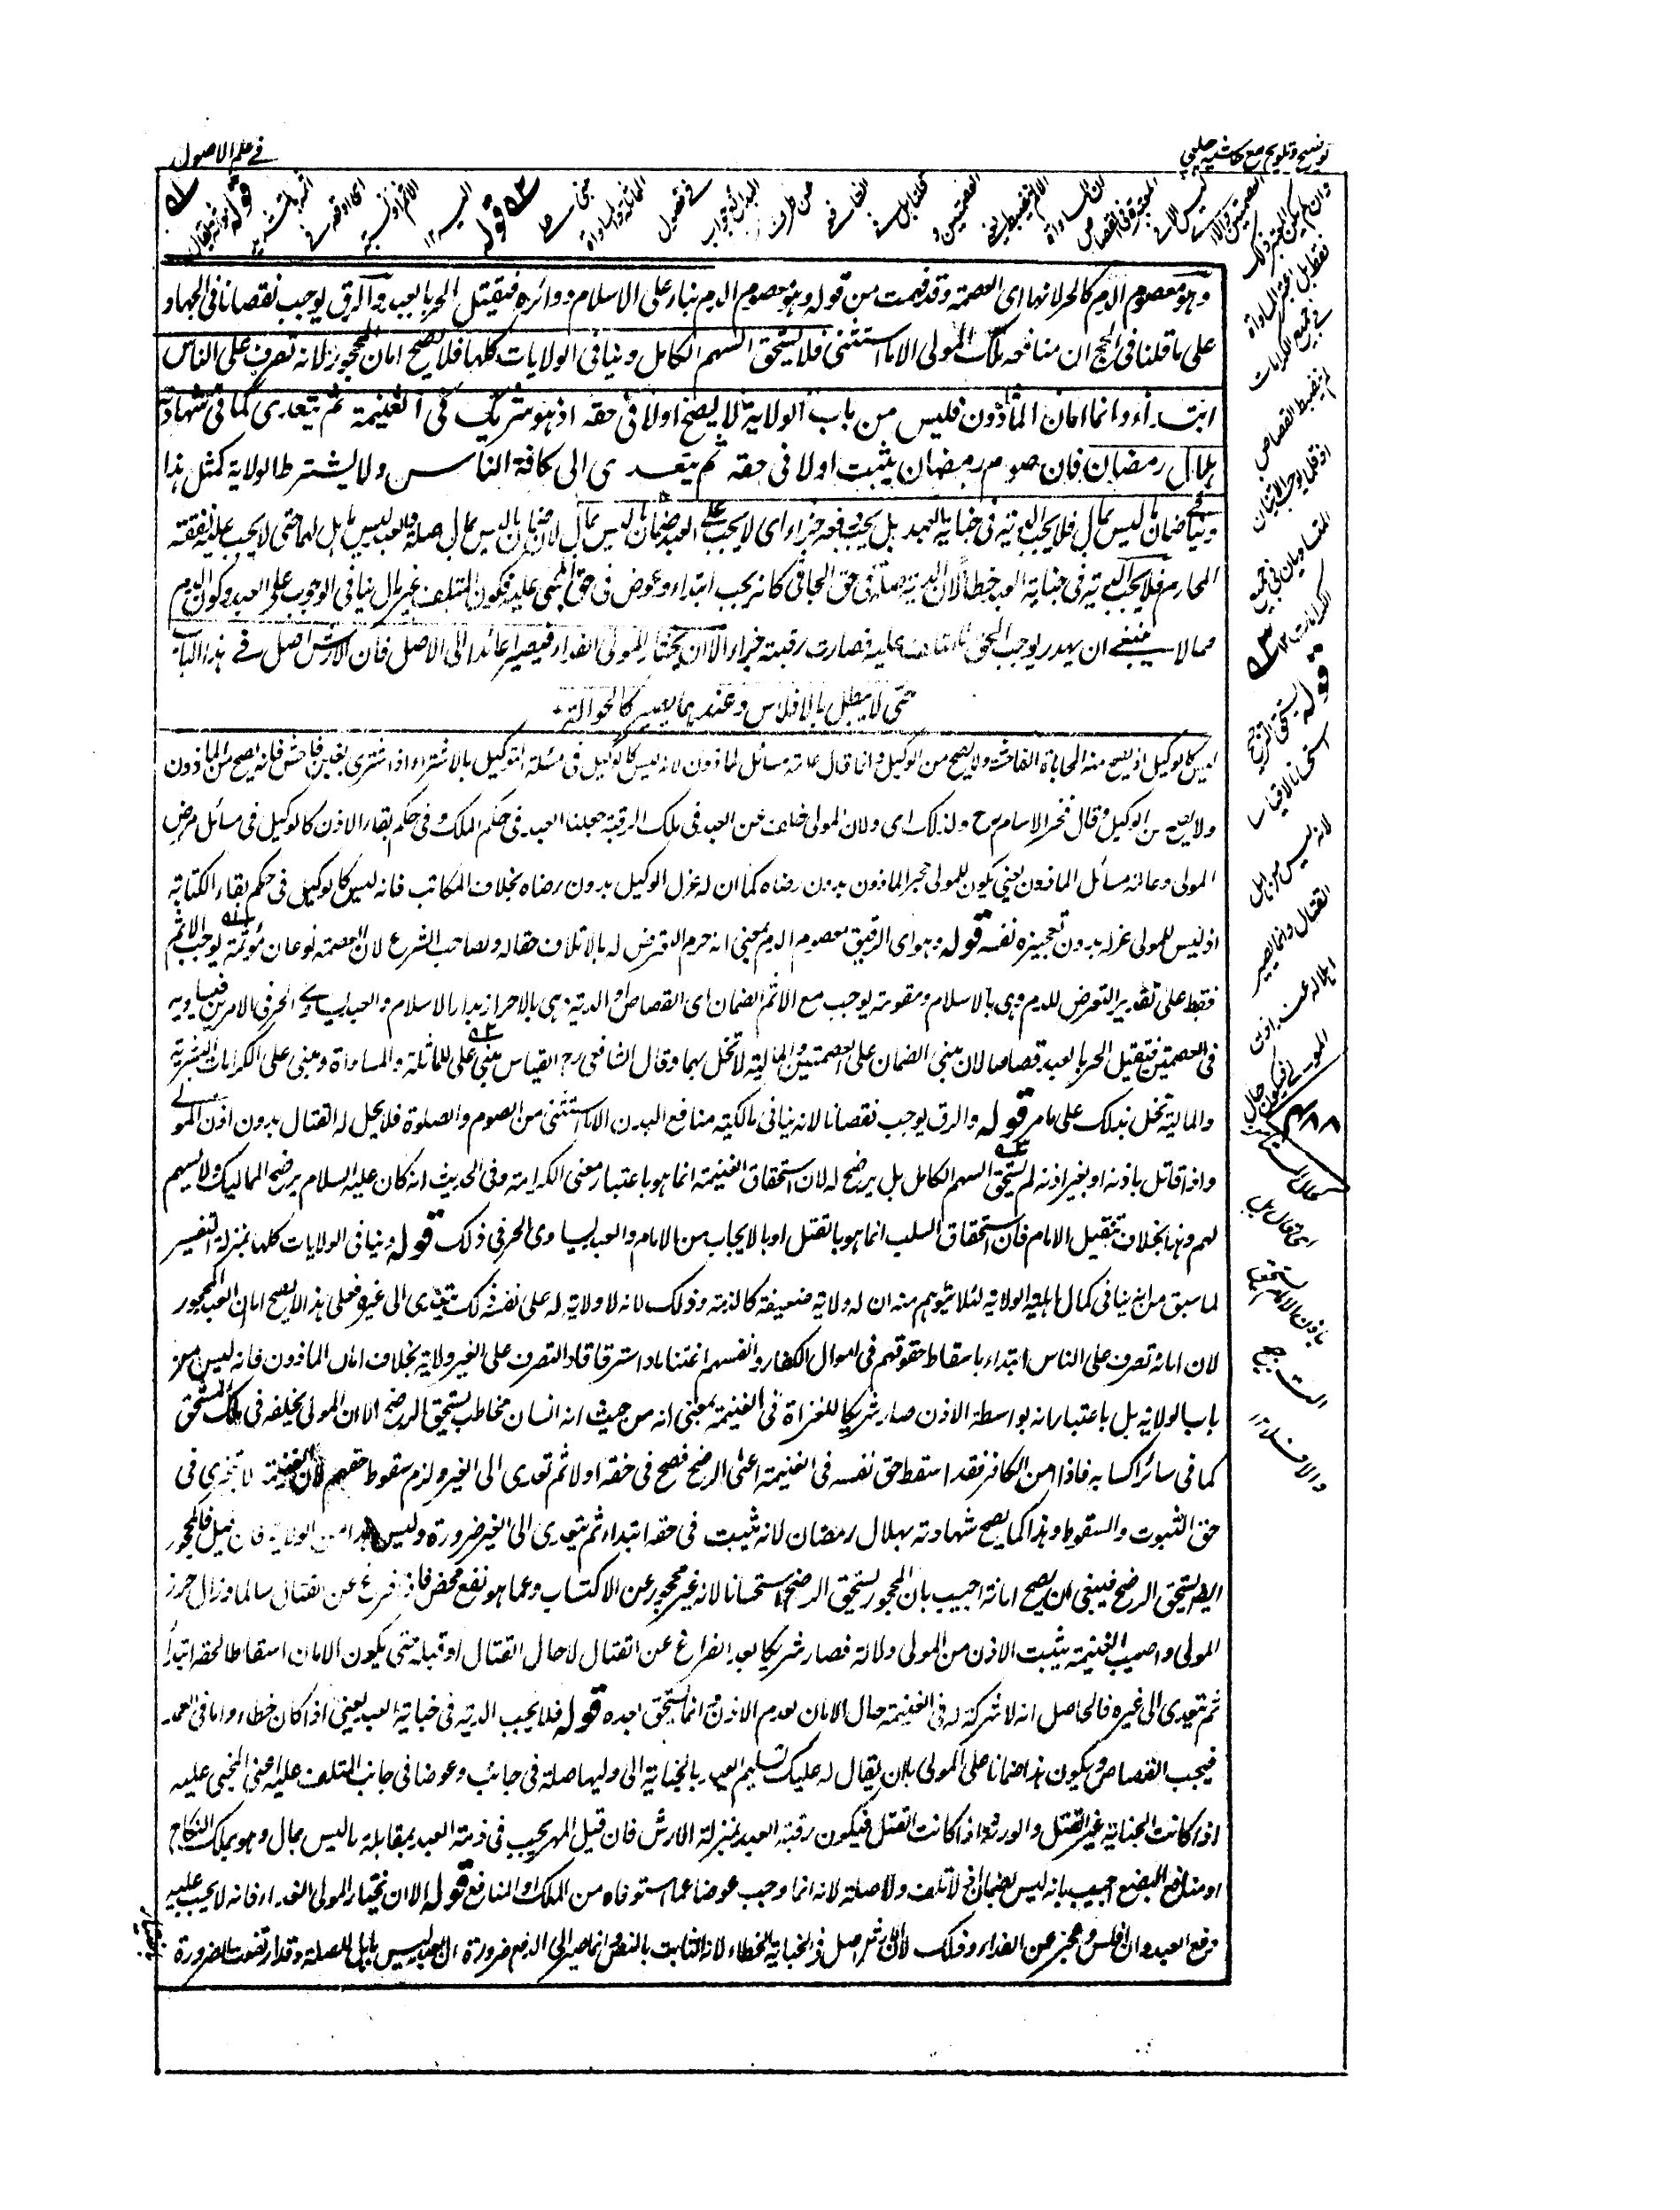 توضيح وتلويح مع حاشيه چلپى
فى علم الاصول
وهو معصوم الدم كالحر لانها اى العصمة وقد فهمت من قوله وهو معصوم الدم بناء على الاسلام وداره فيقتل الحر بالعبد والرق يوجب نقصانا فى الجهاد
على ما قلنا فى الحج ان منافعه ملك المولى الا ما استثنى فلا يستحق السهم الكامل وينافى الولايات كلها فلا يصح امان المحجور لانه تصرف على الناس
ابتداء واما امان المأذون فليس من باب الولاية لا يصح اولا فى حقه اذ هو شريك فى الغنيمة ثم يتعدى كما فى شهادة
هلال رمضان فان صوم رمضان يثبت اولا فى حقه ثم يتعدى الى كافة الناس ولا يشترط الولاية كمثل هذا
وينافى ضمان ما ليس بمال فلا يجب الدية فى جناية العبد بل يجب دفعه جزاء اى لا يجب على العبد ضمان ما ليس بمال لان ضمان ما ليس بمال صلة والعبد ليس باهل لها حتى لا يجب عليه نفقة
المحارم فلا يجب الدية فى جناية العبد خطأ لان الدية صلة فى حق الجانى كانه يجب ابتداء وعوض فى حق المجنى عليه فكون المتلف غير مال ينافى الوجوب على العبد وكون الدم
مما لا ينبغى ان يهدر يوجب الحق للمتلف عليه فصارت رقبته جزاء الا ان يختار المولى الفداء فيصير عائدا الى الاصل فان الارش اصل فى هذا الباب
حتى لا يبطل بالافلاس وعندهما يصير كالحوالة
ليس كالوكيل اذ يصح منه المحاباة الفاحشة ولا يصح من الوكيل وانما قال عامة مسائل الماذون لانه ليس كالوكيل فى مسئلة التوكيل بالاشتراء اذا اشترى بغبن فاحش فانه يصح من الماذون
ولا يصح من الوكيل وقال فخر الاسلام رح ولذلك اى ولان المولى خلف عن العبد فى ملك الرقبة جعلنا العبد فى حكم الملك وفى حكم بقاء الاذن كالوكيل فى مسائل مرض
المولى وعامة مسائل الماذون يعنى يكون للمولى حجر الماذون بدون رضاه كما ان له عزل الوكيل بدون رضاه بخلاف المكاتب فانه ليس كالوكيل فى حكم بقاء الكتابة
اذ ليس للمولى عزله بدون تعجيزه نفسه قوله وهو اى الرقيق معصوم الدم بمعنى انه حرم التعرض له بالاتلاف حقا له ولصاحب الشرع لان العصمة نوعان مؤثمة يوجب الاثم
فقط على تقدير التعرض للدم وهى بالاسلام ومقومة يوجب مع الاثم الضمان اى القصاص او الدية وهى بالاحراز بدار الاسلام والعبد يساوى الحر فى الامرين فيساويه
فى العصمتين فيقتل الحر بالعبد قصاصا لان مبنى الضمان على العصمتين والمالية لا تخل بهما وقال الشافعى رح القياس مبنى على المماثلة والمساواة ومبنى على الكرامات البشرية
والمالية تخل بذلك على ما مر قوله والرق يوجب نقصانا لانه ينافى مالكية منافع البدن الا ما استثنى من الصوم والصلوة فلا يحل له القتال بدون اذن المولى
واذا قاتل باذنه او بغير اذنه لم يستحق السهم الكامل بل يرضخ له لان استحقاق الغنيمة انما هو باعتبار معنى الكرامة وفى الحديث انه كان عليه السلام يرضخ المماليك ولا يسهم
لهم وهذا بخلاف تنفيل الامام فان استحقاق السلب انما هو بالقتل او بالايجاب من الامام والعبد يساوى الحر فى ذلك قوله وينافى الولايات كلها بمنزلة التفسير
لما سبق من انه ينافى كمال اهلية الولاية لئلا يتوهم منه ان له ولاية ضعيفة كالذمة وذلك لانه لا ولاية له على نفسه فكيف يتعدى الى غيره فعلى هذا لا يصح امان العبد المحجور
لان امانه تصرف على الناس ابتداء باسقاط حقوقهم فى اموال الكفار وانفسهم اغتناما واسترقاقا والتصرف على الغير ولاية بخلاف امان الماذون فانه ليس من
باب الولاية بل باعتبار انه بواسطة الاذن صار شريكا للغزاة فى الغنيمة بمعنى انه من حيث انه انسان مخاطب يستحق الرضخ الا ان المولى يخلفه فى ملك المستحق
كما فى سائر اكسابه فاذا امن الكافر فقد اسقط حق نفسه فى الغنيمة اعنى الرضخ فصح فى حقه اولا ثم تعدى الى الغير ولزم سقوط حقهم لان الغنيمة لا تتجزى فى
حق الثبوت والسقوط وهذا كما يصح شهادته بهلال رمضان لانه يثبت فى حقه ابتداء ثم يتعدى الى الغير ضرورة وليس هذا من الولاية فان قيل فالمحجور
ايضا يستحق الرضخ فينبغى ان يصح امانه اجيب بان المحجور يستحق الرضخ استحسانا لانه غير محجور عن الاكتساب وعما هو نفع محض فاذا فرغ عن القتال سالما وزال ضرر
المولى واصيب الغنيمة يثبت الاذن من المولى دلالة فصار شريكا بعد الفراغ عن القتال لا حال القتال او قبله حتى يكون الامان اسقاطا لحقه ابتداء
ثم يتعدى الى غيره فالحاصل انه لا شركة له فى الغنيمة حال الامان لعدم الاذن وانما يستحق بعده قوله فلا يجب الدية فى جناية العبد يعنى اذا كان خطاء واما فى العمد
فيجب القصاص ويكون هذا ضمانا على المولى بان يقال له عليك تسليم العبد بالجناية الى وليها صلة فى جانبك وعوضا فى جانب المتلف عليه اعنى المجنى عليه
اذا كانت الجناية غير القتل والورثة اذا كانت القتل فيكون رقبة العبد بمنزلة الارش فان قيل المهر يجب فى ذمة العبد بمقابلة ما ليس بمال وهو ملك النكاح
او منافع البضع اجيب بانه ليس بضمان اذ لا تلف ولا صلة لانه انما وجب عوضا عما استوفاه من الملك او المنافع قوله الا ان يختار المولى الفداء فانه لا يجب عليه
دفع العبد وان افلس وعجز عن الفداء وذلك لان الارش اصل فى الجناية الخطاء لانه الثابت بالنص وانما صير الى الدفع ضرورة ان العبد ليس باهل للصلة وقد ارتفعت الضرورة
وان لم يكن المعتبر ذلك
فقط بل اعتبر المساواة
فى جميع الكرامات
لم ينضبط القصاص
اذ قلما يوجد الاثنان
المتساويان فى جميع
الكرامات ١٢
قوله
استحسانا لا قياسا
لانه ليس من اهل
القتال وانما يصير
اهلا له عند اذن
المولى فيكون حال